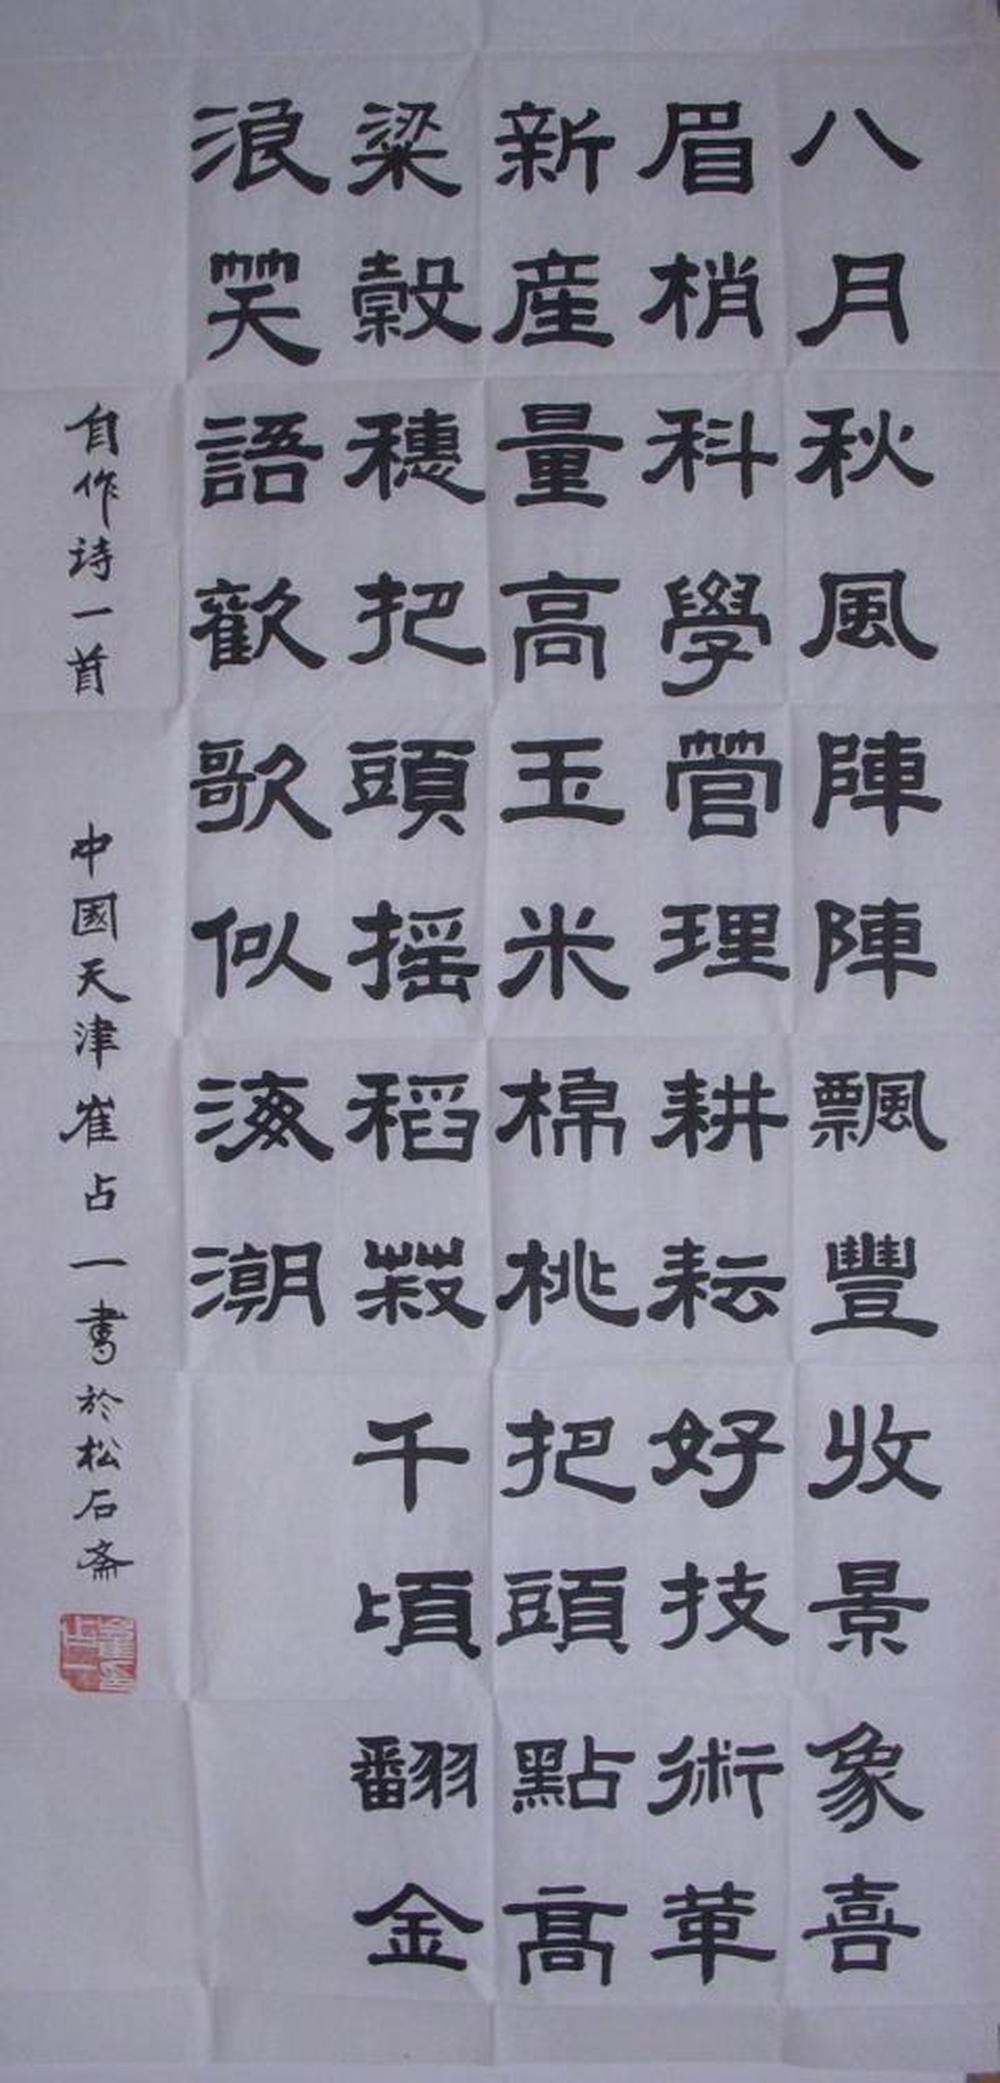 八月秋風陣陣飄豐收景象喜
眉梢科學管理耕耘好技術革
新産量高玉米棉桃把頭點高
粱穀穗把頭摇稻菽千頃翻金
浪笑語歡歌似海潮
自作诗一首 中國天津崔占一書於松石斋
崔占一印